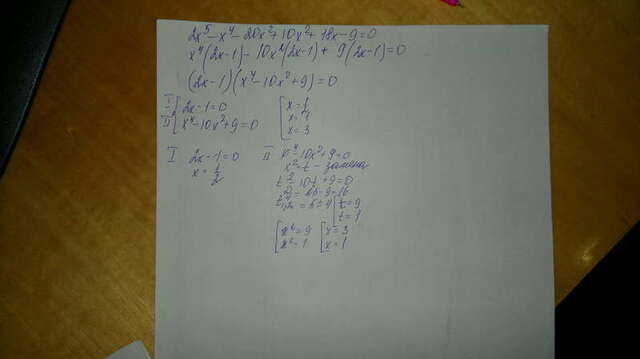 2x⁵-x⁴-20x³+10x²+18x-9=0
x⁴(2x-1)-10x²(2x-1)+9(2x-1)=0
(2x-1)(x⁴-10x²+9)=0
I [2x-1=0
II [x⁴-10x²+9=0
[x=1
x=
x=3
I 2x-1=0
x=1/2
II x⁴-10x²+9=0
x²=t - замена
t²-10t+9=0
=16
t₁,₂=5±4 [t=9
t=1
[x²=9 [x=3
x²=1 x=1